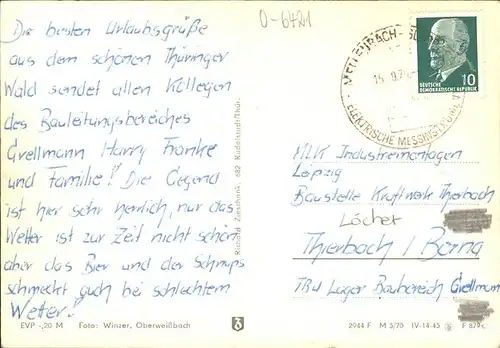 O-6421
Die besten Urlaubsgrüße
aus dem schönen Thüringer
Wald sendet allen Kollegen
des Bauleitungsbereiches
Grellmann Harry Franke
und Familie! Die Gegend
ist hier sehr herrlich, nur das
Wetter ist zur Zeit nicht schön
aber das Bier und der Schnaps
schmeckt auch bei schlechtem
Wetter!
EVP -,20 M Foto: Winzer, Oberweißbach
Zuschenk, 682 Rudolstadt/Thür.
MELLENBACH-
15.9.70
ELEKTRISCHE MESSINSTRUMENTE
10
DEUTSCHE
DEMOKRATISCHE REPUBLIK
MLK Industriemontagen
Leipzig
Baustelle Kraftwerk Thierbach
Löcher
Thierbach / Borna
TRU Lager Baubereich Grellmann
2944 F M 5/70 IV-14-45 F 879